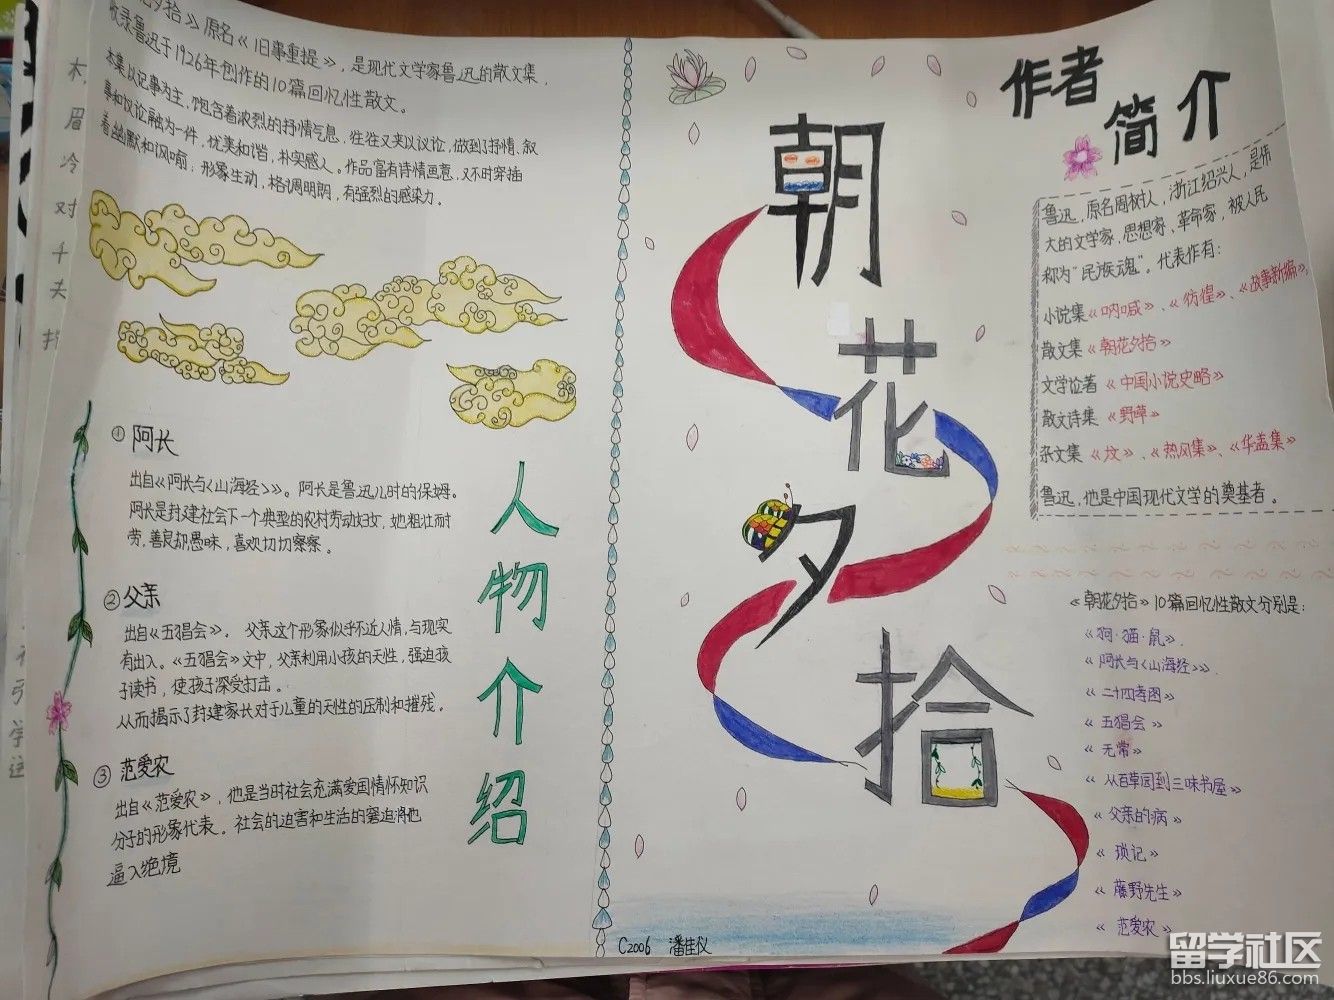 夕拾》原名《旧事重提》，是现代文学家鲁迅的散文集，
收录鲁迅于1926年创作的10篇回忆性散文。
本集以记事为主，饱含着浓烈的抒情气息，往往又夹以议论，做到了抒情、叙
事和议论融为一件，优美和谐，朴实感人。作品富有诗情画意，又不时穿插
着幽默和讽喻；形象生动，格调明朗，有强烈的感染力。
①阿长
出自《阿长与〈山海经〉》。阿长是鲁迅儿时的保姆。
阿长是封建社会下一个典型的农村劳动妇女，她粗壮而耐
劳，善良却愚昧，喜欢切切察察。
②父亲
出自《五猖会》。父亲这个形象似乎不近人情，与现实
有出入。《五猖会》文中，父亲利用小孩的天性，强迫孩
子读书，使孩子深受打击。
从而揭示了封建家长对于儿童的天性的压制和摧残。
③范爱农
出自《范爱农》，他是当时社会充满爱国情怀知识
分子的形象代表。社会的迫害和生活的窘迫将他
逼入绝境
人物介绍
朝花夕拾
C2006 潘佳仪
作者简介
鲁迅，原名周树人，浙江绍兴人，是伟
大的文学家、思想家、革命家，被人民
称为"民族魂"。代表作有：
小说集《呐喊》、《彷徨》、《故事新编》，
散文集《朝花夕拾》
文学论著《中国小说史略》
散文诗集《野草》
杂文集《坟》、《热风集》、《华盖集》
鲁迅，他是中国现代文学的奠基者。
《朝花夕拾》10篇回忆性散文分别是：
《狗·猫·鼠》．
《阿长与〈山海经〉》．
《二十四孝图》
《五猖会》
《无常》
《从百草园到三味书屋》
《父亲的病》
《琐记》
《藤野先生》
《范爱农》
眉
冷
对
千
夫
指
留学社区
bbs.liuxue86.com